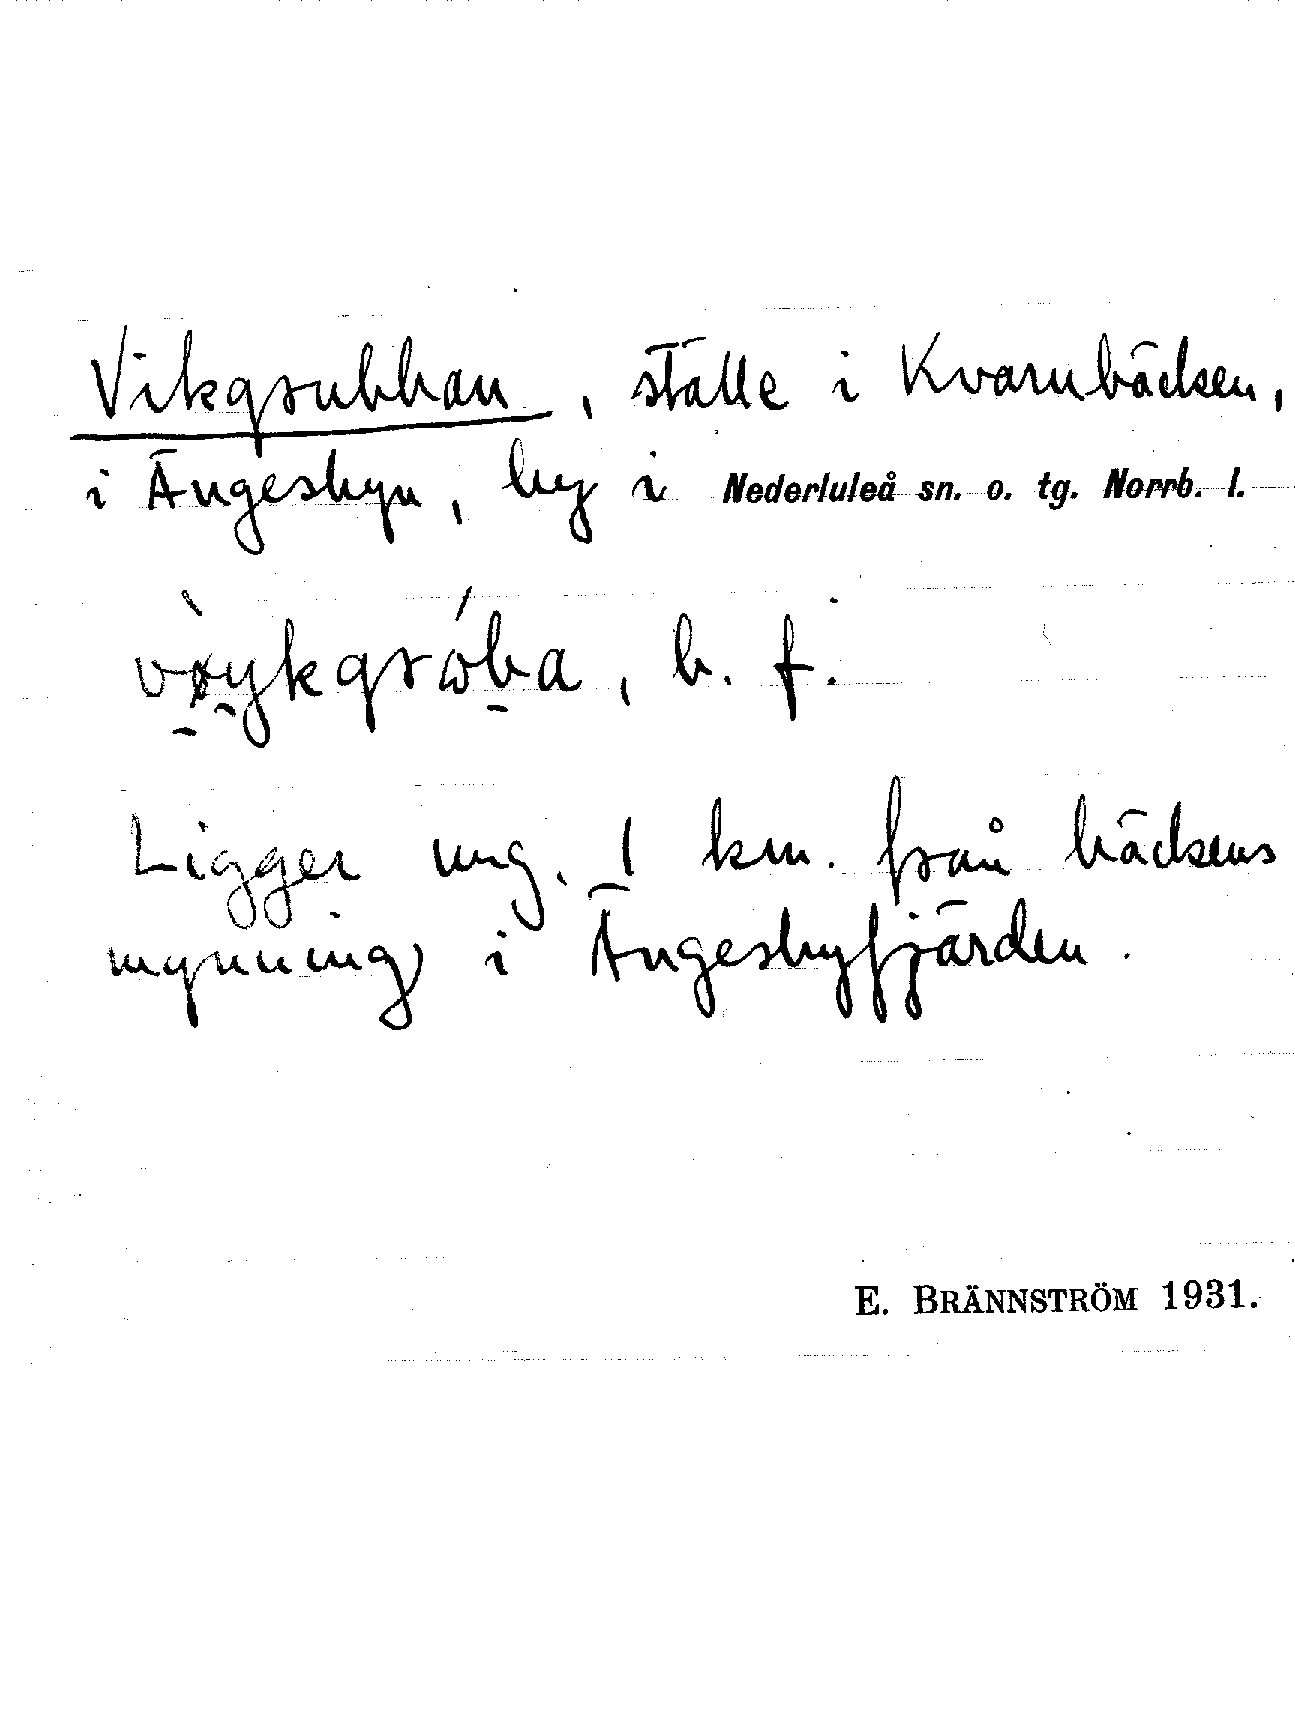 Vikgrubban, ställe i Kvarnbäcken,
i Ängesbyn, by i Nederluleå sn. o. tg. Norrb. l.
b. f.
Ligger ung. 1 km. från bäckens
mynning i Ängesbyfjärden.
E. BRÄNNSTRÖM 1931.